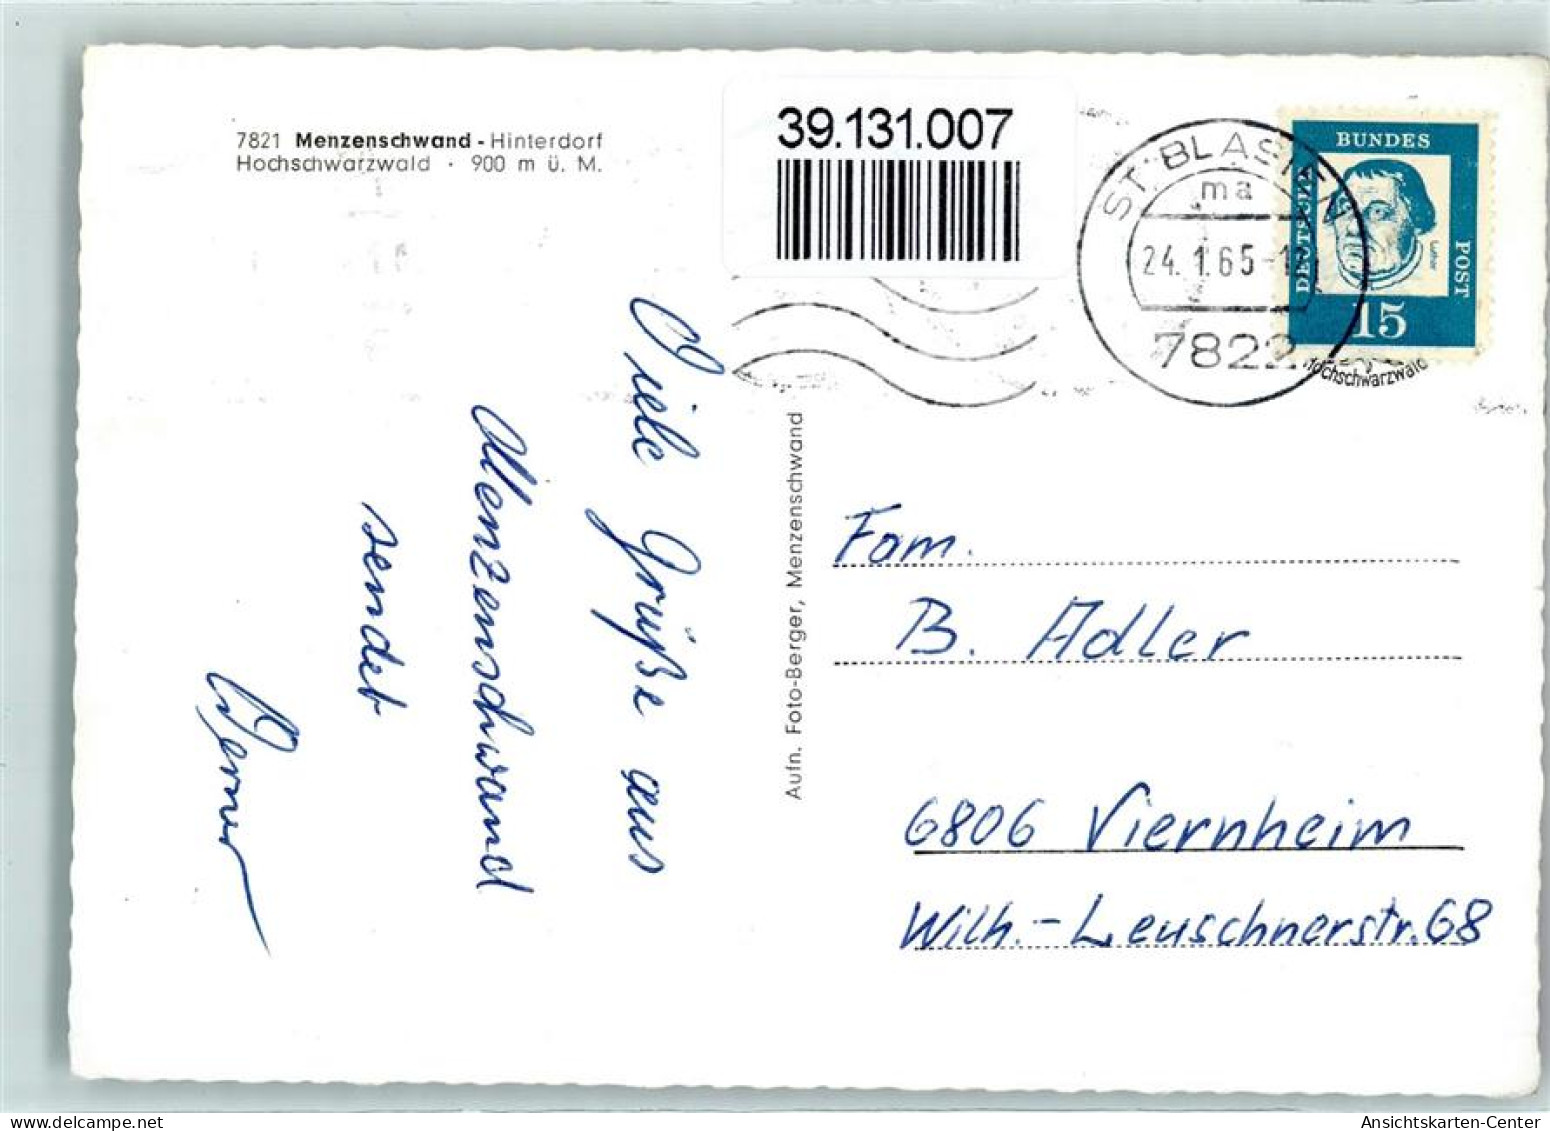 7821 Menzenschwand - Hinterdorf
Hochschwarzwald · 900 m ü. M.
39.131.007
ST. BLASIEN
ma
24. 1. 65-
7822
Hochschwarzwald
DEUTSCHE
BUNDES
POST
Luther
15
Viele Grüße aus
Menzenschwand
sendet
Werner
Aufn. Foto-Berger, Menzenschwand
Fam.
B. Adler
6806 Viernheim
Wilh.-Leuschnerstr. 68
Ansichtskarten-Center